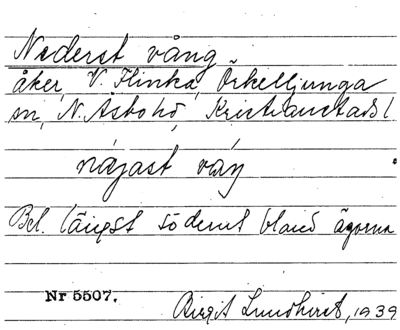 Nederst vång
åker, V. Flinka, Örkelljunga
sn, N. Åsbo hd, Kristianstads l
nájast váŋ
Bel. längst söderut bland ägorna
Nr 5507.
Birgit Lundkvist, 1939